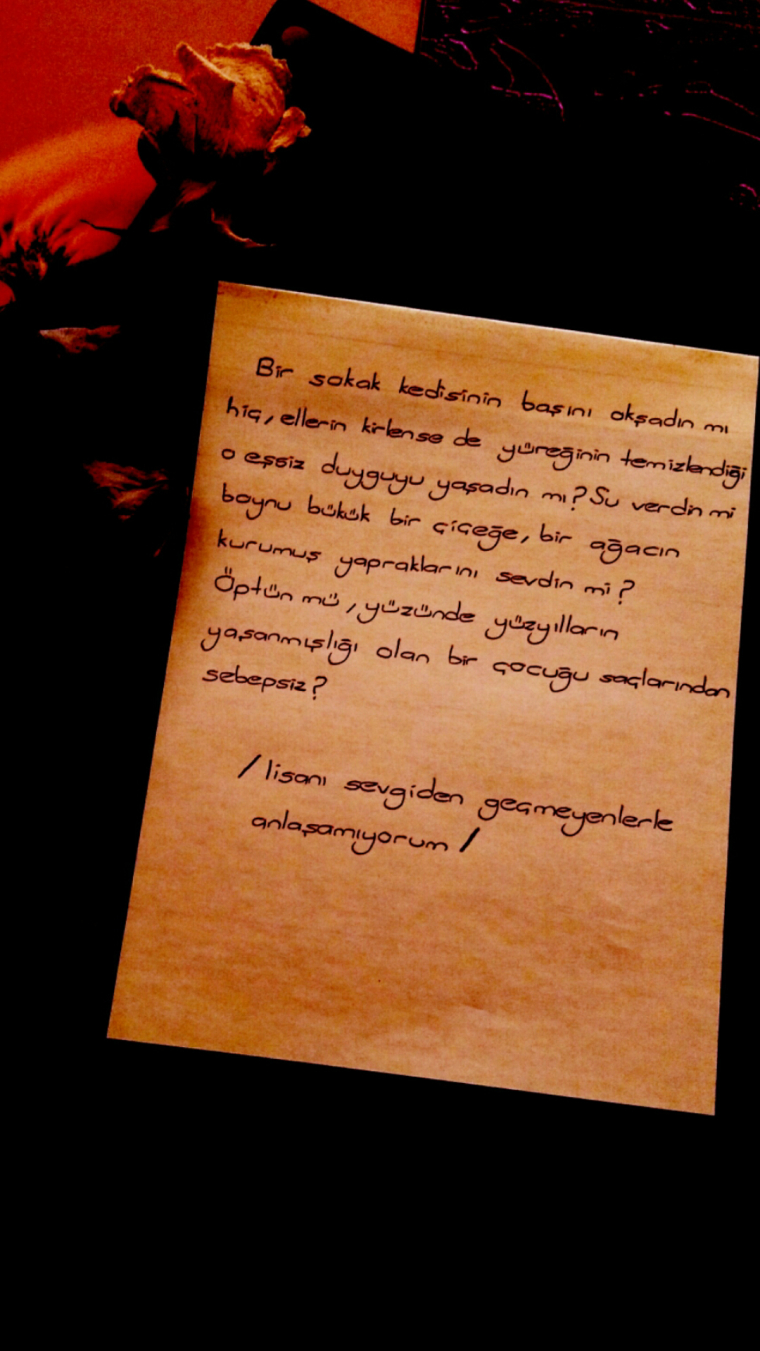 Bir sokak kedisinin başını okşadın mı
hiç, ellerin kirlense de yüreğinin temizlendiği
o eşsiz duyguyu yaşadın mı? Su verdin mi
boynu bükük bir çiçeğe, bir ağacın
kurumuş yapraklarını sevdin mi?
Öptün mü, yüzünde yüzyılların
yaşanmışlığı olan bir çocuğu saçlarından
sebepsiz?
/lisanı sevgiden geçmeyenlerle
anlaşamıyorum/